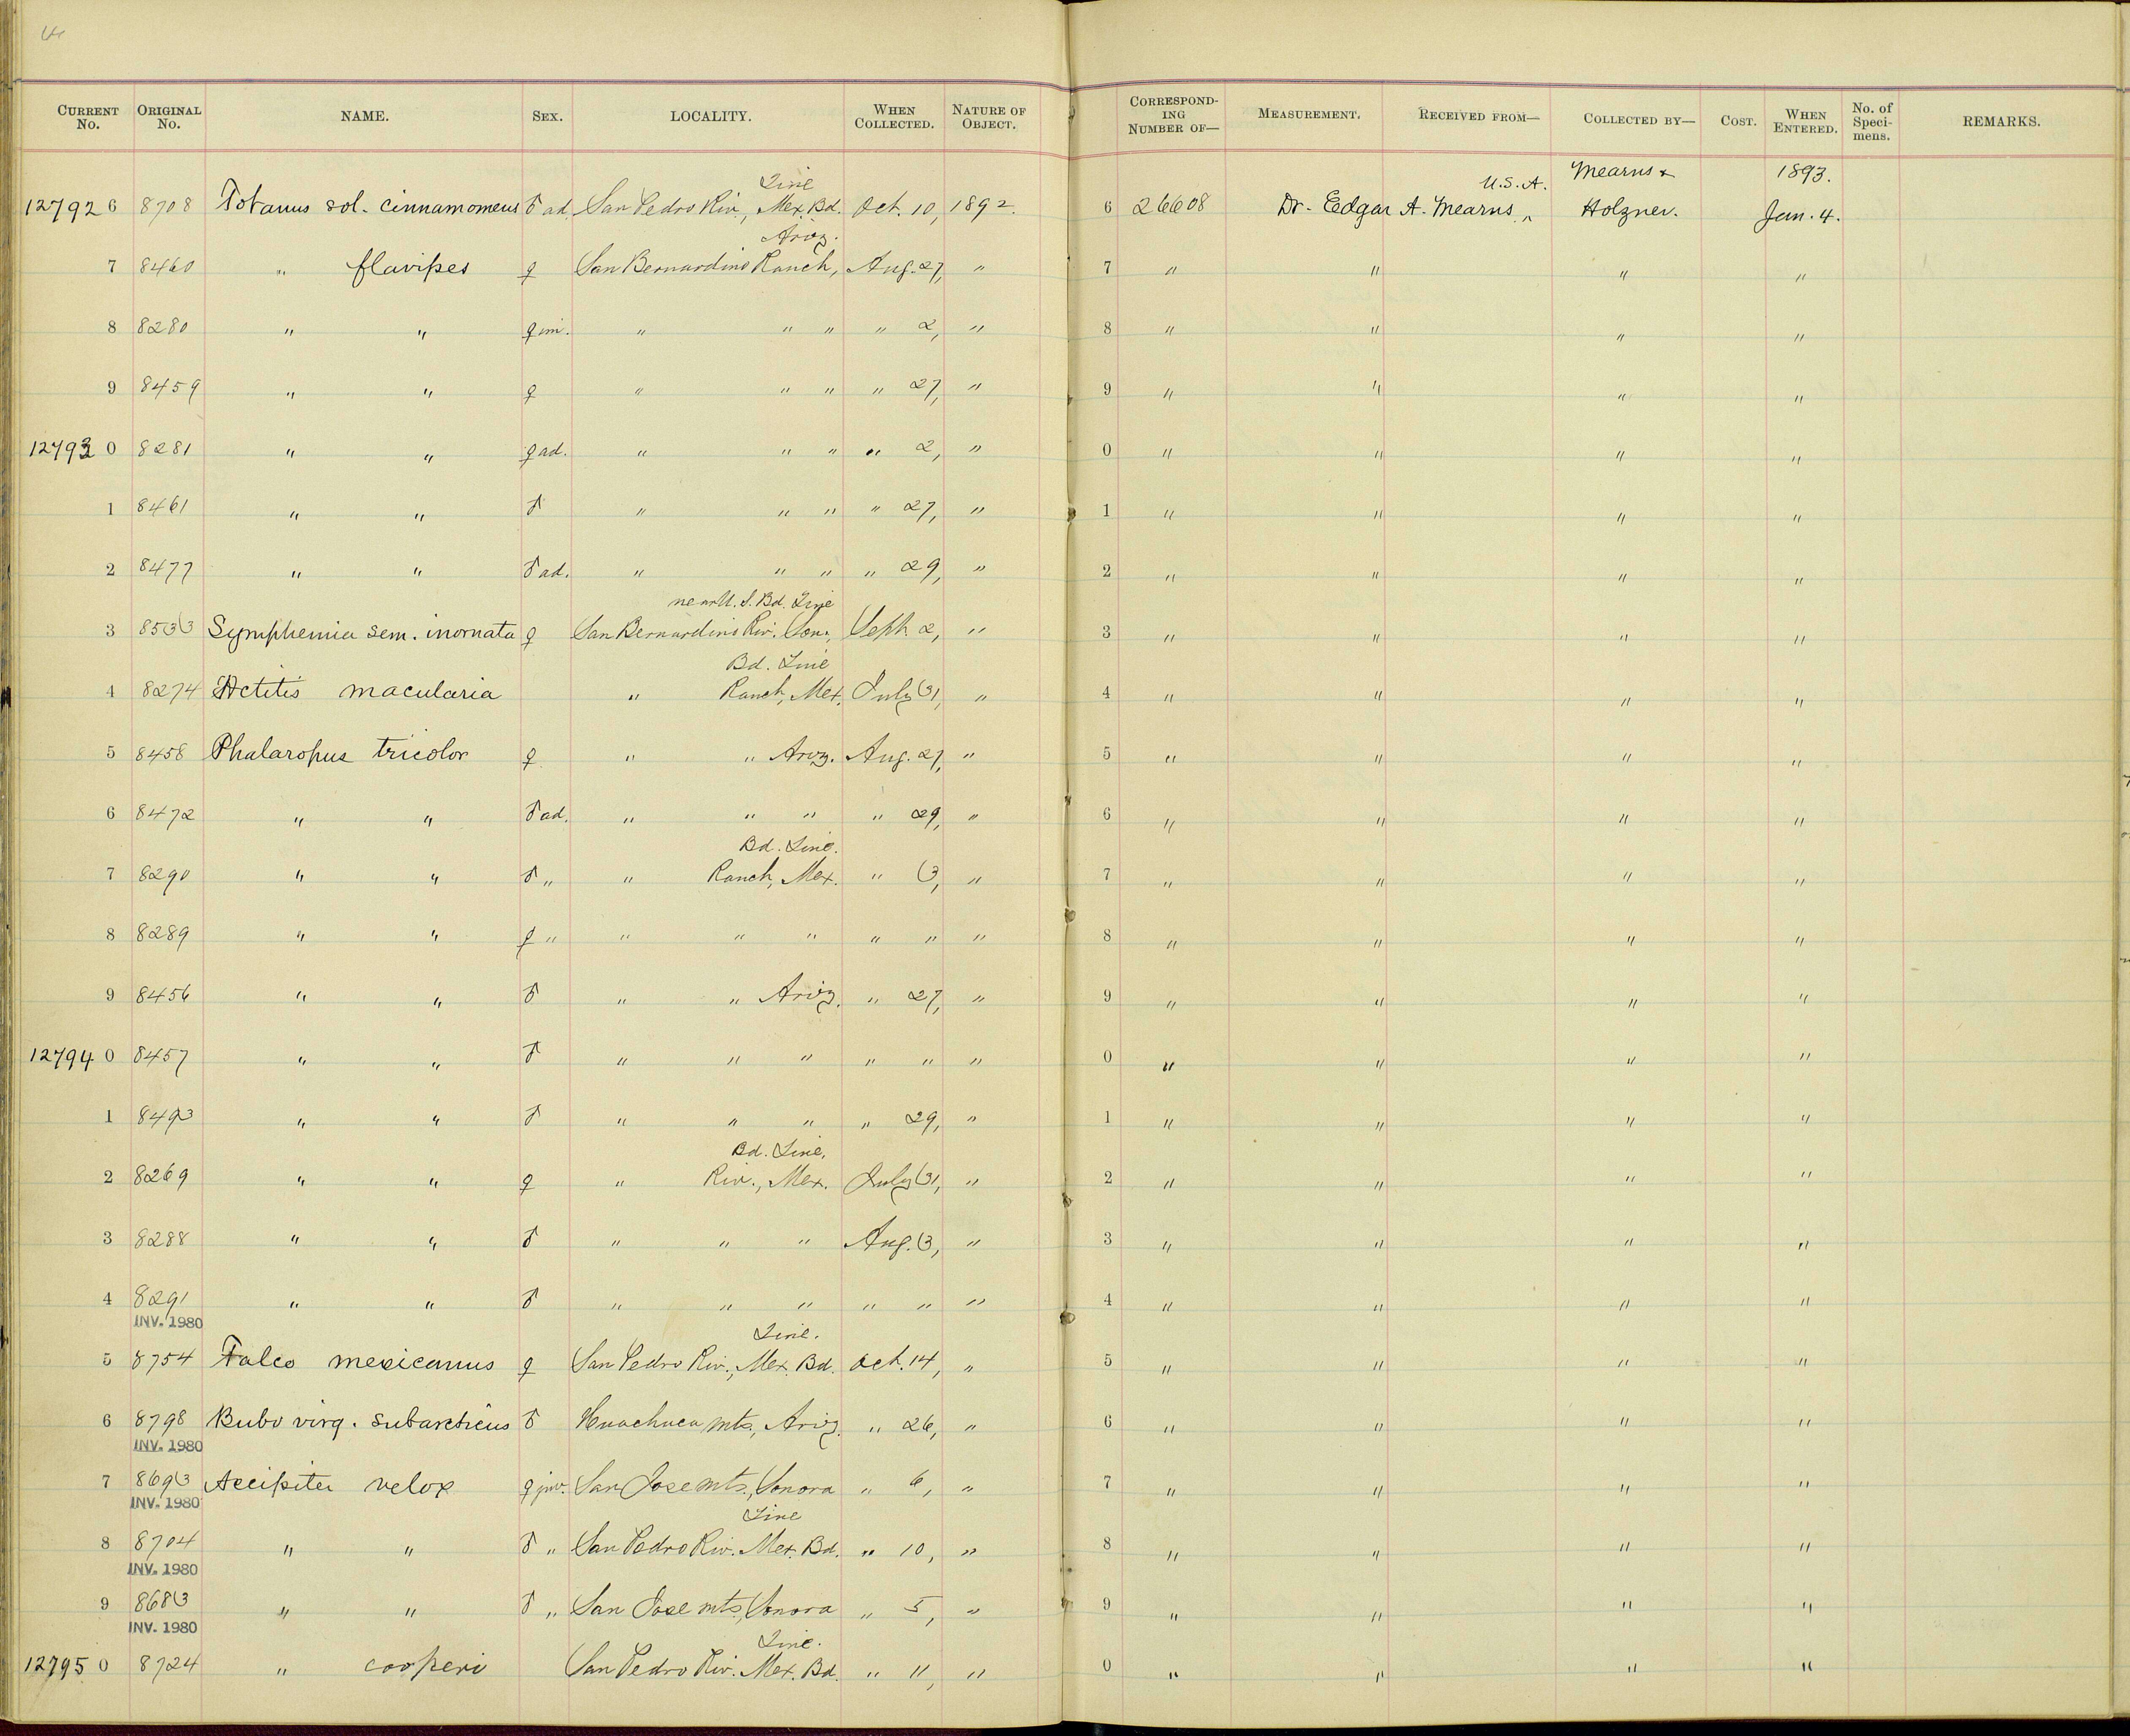 CURRENT No. ORIGINAL No. NAME. SEX. LOCALITY. WHEN COLLECTED. NATURE OF OBJECT. CORRESPONDING NUMBER OF— MEASUREMENT. RECEIVED FROM— COLLECTED BY— COST. WHEN ENTERED. No. of Specimens. REMARKS.
Line U.S.A. Mearns & 1893.
12792 6 8708 Totanus sol. cinnamomeus ♂ ad. San Pedro Riv., Mex. Bd. Oct. 10, 1892. 6 26608 Dr. Edgar A. Mearns, Holzner. Jan. 4.
Ariz.
7 8460 " flavipes ♀ San Bernardino Ranch, Aug. 27, " 7 " " " "
8 8280 " " ♀ im. " " " " 2, " 8 " " " "
9 8459 " " ♀ " " " " 27, " 9 " " " "
12793 0 8281 " " ♀ ad. " " " " 2, " 0 " " " "
1 8461 " " ♂ " " " " 27, " 1 " " " "
2 8477 " " ♂ ad. " " " " 29, " 2 " " " "
near U. S. Bd. Line
3 8533 Symphemia sem. inornata ♀ San Bernardino Riv. Son., Sept. 2, " 3 " " " "
Bd. Line
4 8274 Actitis macularia " Ranch, Mex. July 31, " 4 " " " "
5 8458 Phalaropus tricolor ♀ " " Ariz. Aug. 27, " 5 " " " "
6 8472 " " ♂ ad. " " " " 29, " 6 " " " "
Bd. Line.
7 8290 " " ♂ " " Ranch, Mex. " 3, " 7 " " " "
8 8289 " " ♀ " " " " " " " 8 " " " "
9 8456 " " ♂ " " Ariz. " 27, " 9 " " " "
12794 0 8457 " " ♂ " " " " " " 0 " " " "
1 8493 " " ♂ " " " " 29, " 1 " " " "
Bd. Line,
2 8269 " " ♀ " Riv., Mex. July 31, " 2 " " " "
3 8288 " " ♂ " " " Aug. 3, " 3 " " " "
4 8291 " " ♂ " " " " " " 4 " " " "
INV. 1980
Line.
5 8754 Falco mexicanus ♀ San Pedro Riv., Mex. Bd. Oct. 14, " 5 " " " "
6 8798 Bubo virg. subarcticus ♂ Huachuca mts., Ariz. " 26, " 6 " " " "
INV. 1980
7 8693 Accipiter velox ♀ juv. San Jose mts., Sonora " 6, " 7 " " " "
INV. 1980
Line
8 8704 " " ♂ " San Pedro Riv. Mex. Bd. " 10, " 8 " " " "
INV. 1980
9 8683 " " ♂ " San Jose mts., Sonora " 5, " 9 " " " "
INV. 1980
Line.
12795 0 8724 " cooperi San Pedro Riv. Mex. Bd. " 11, " 0 " " " "